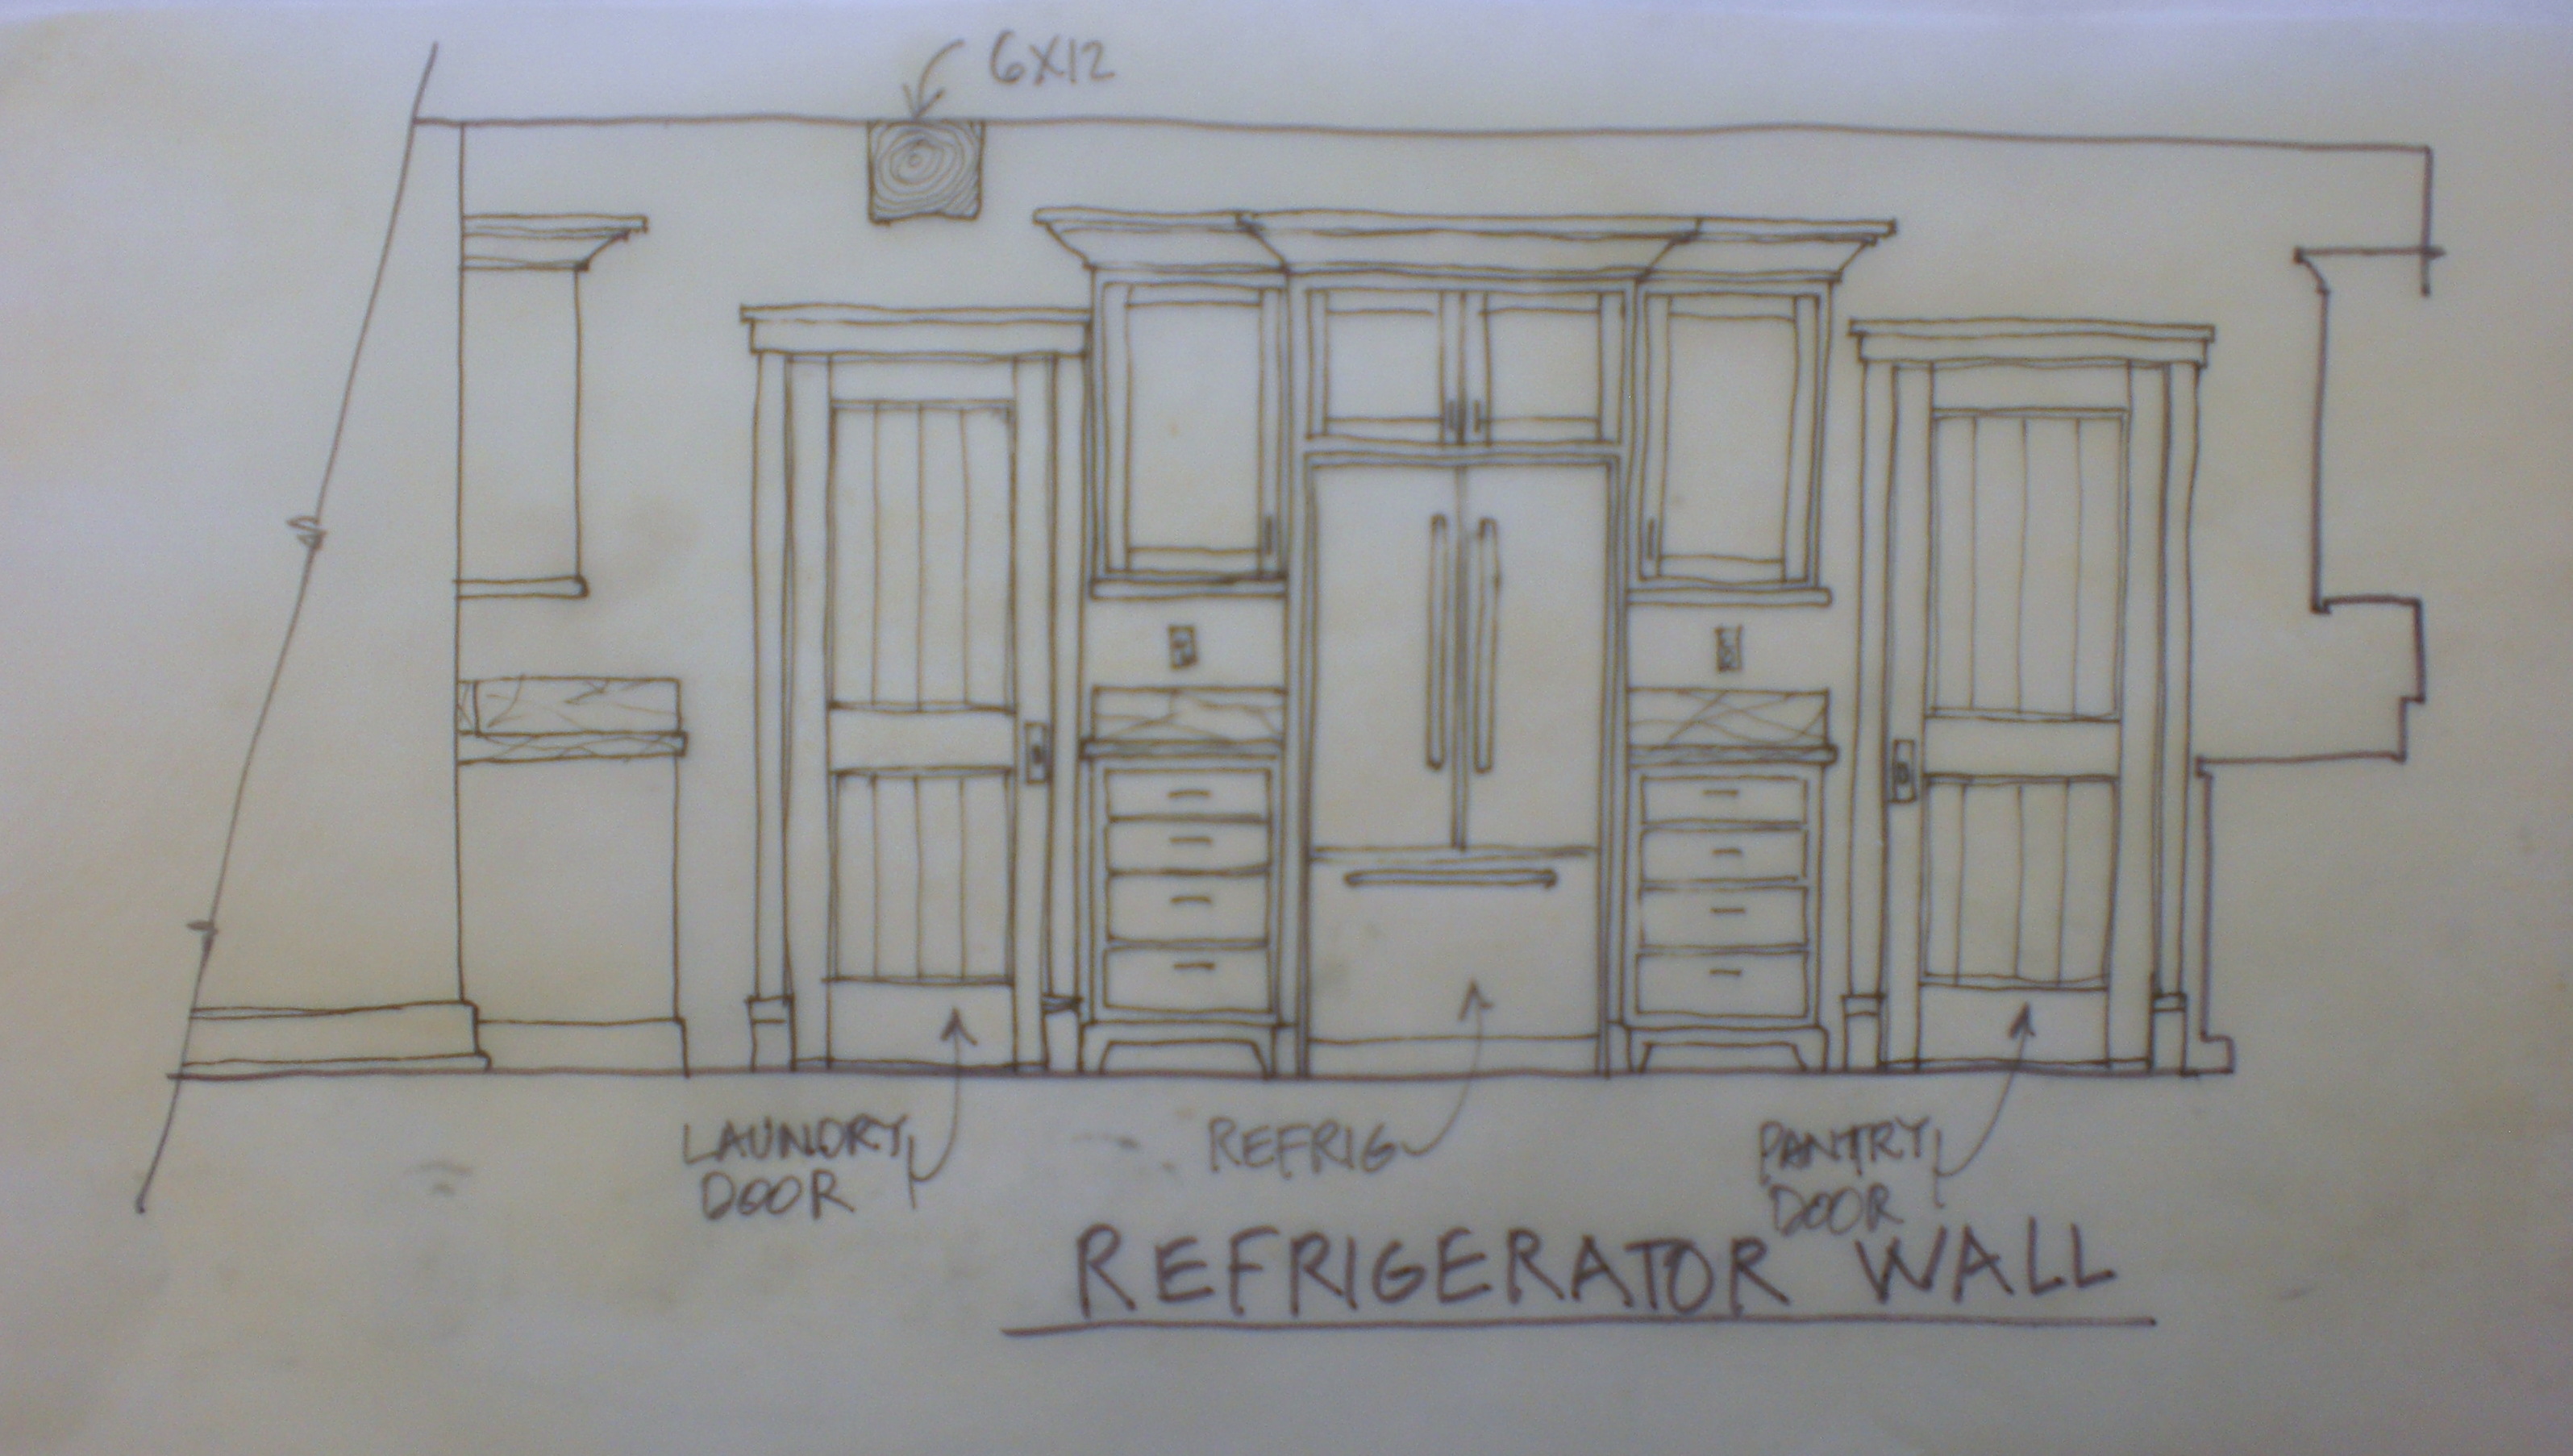 6X12
LAUNDRY
DOOR
REFRIG
PANTRY
DOOR
REFRIGERATOR WALL